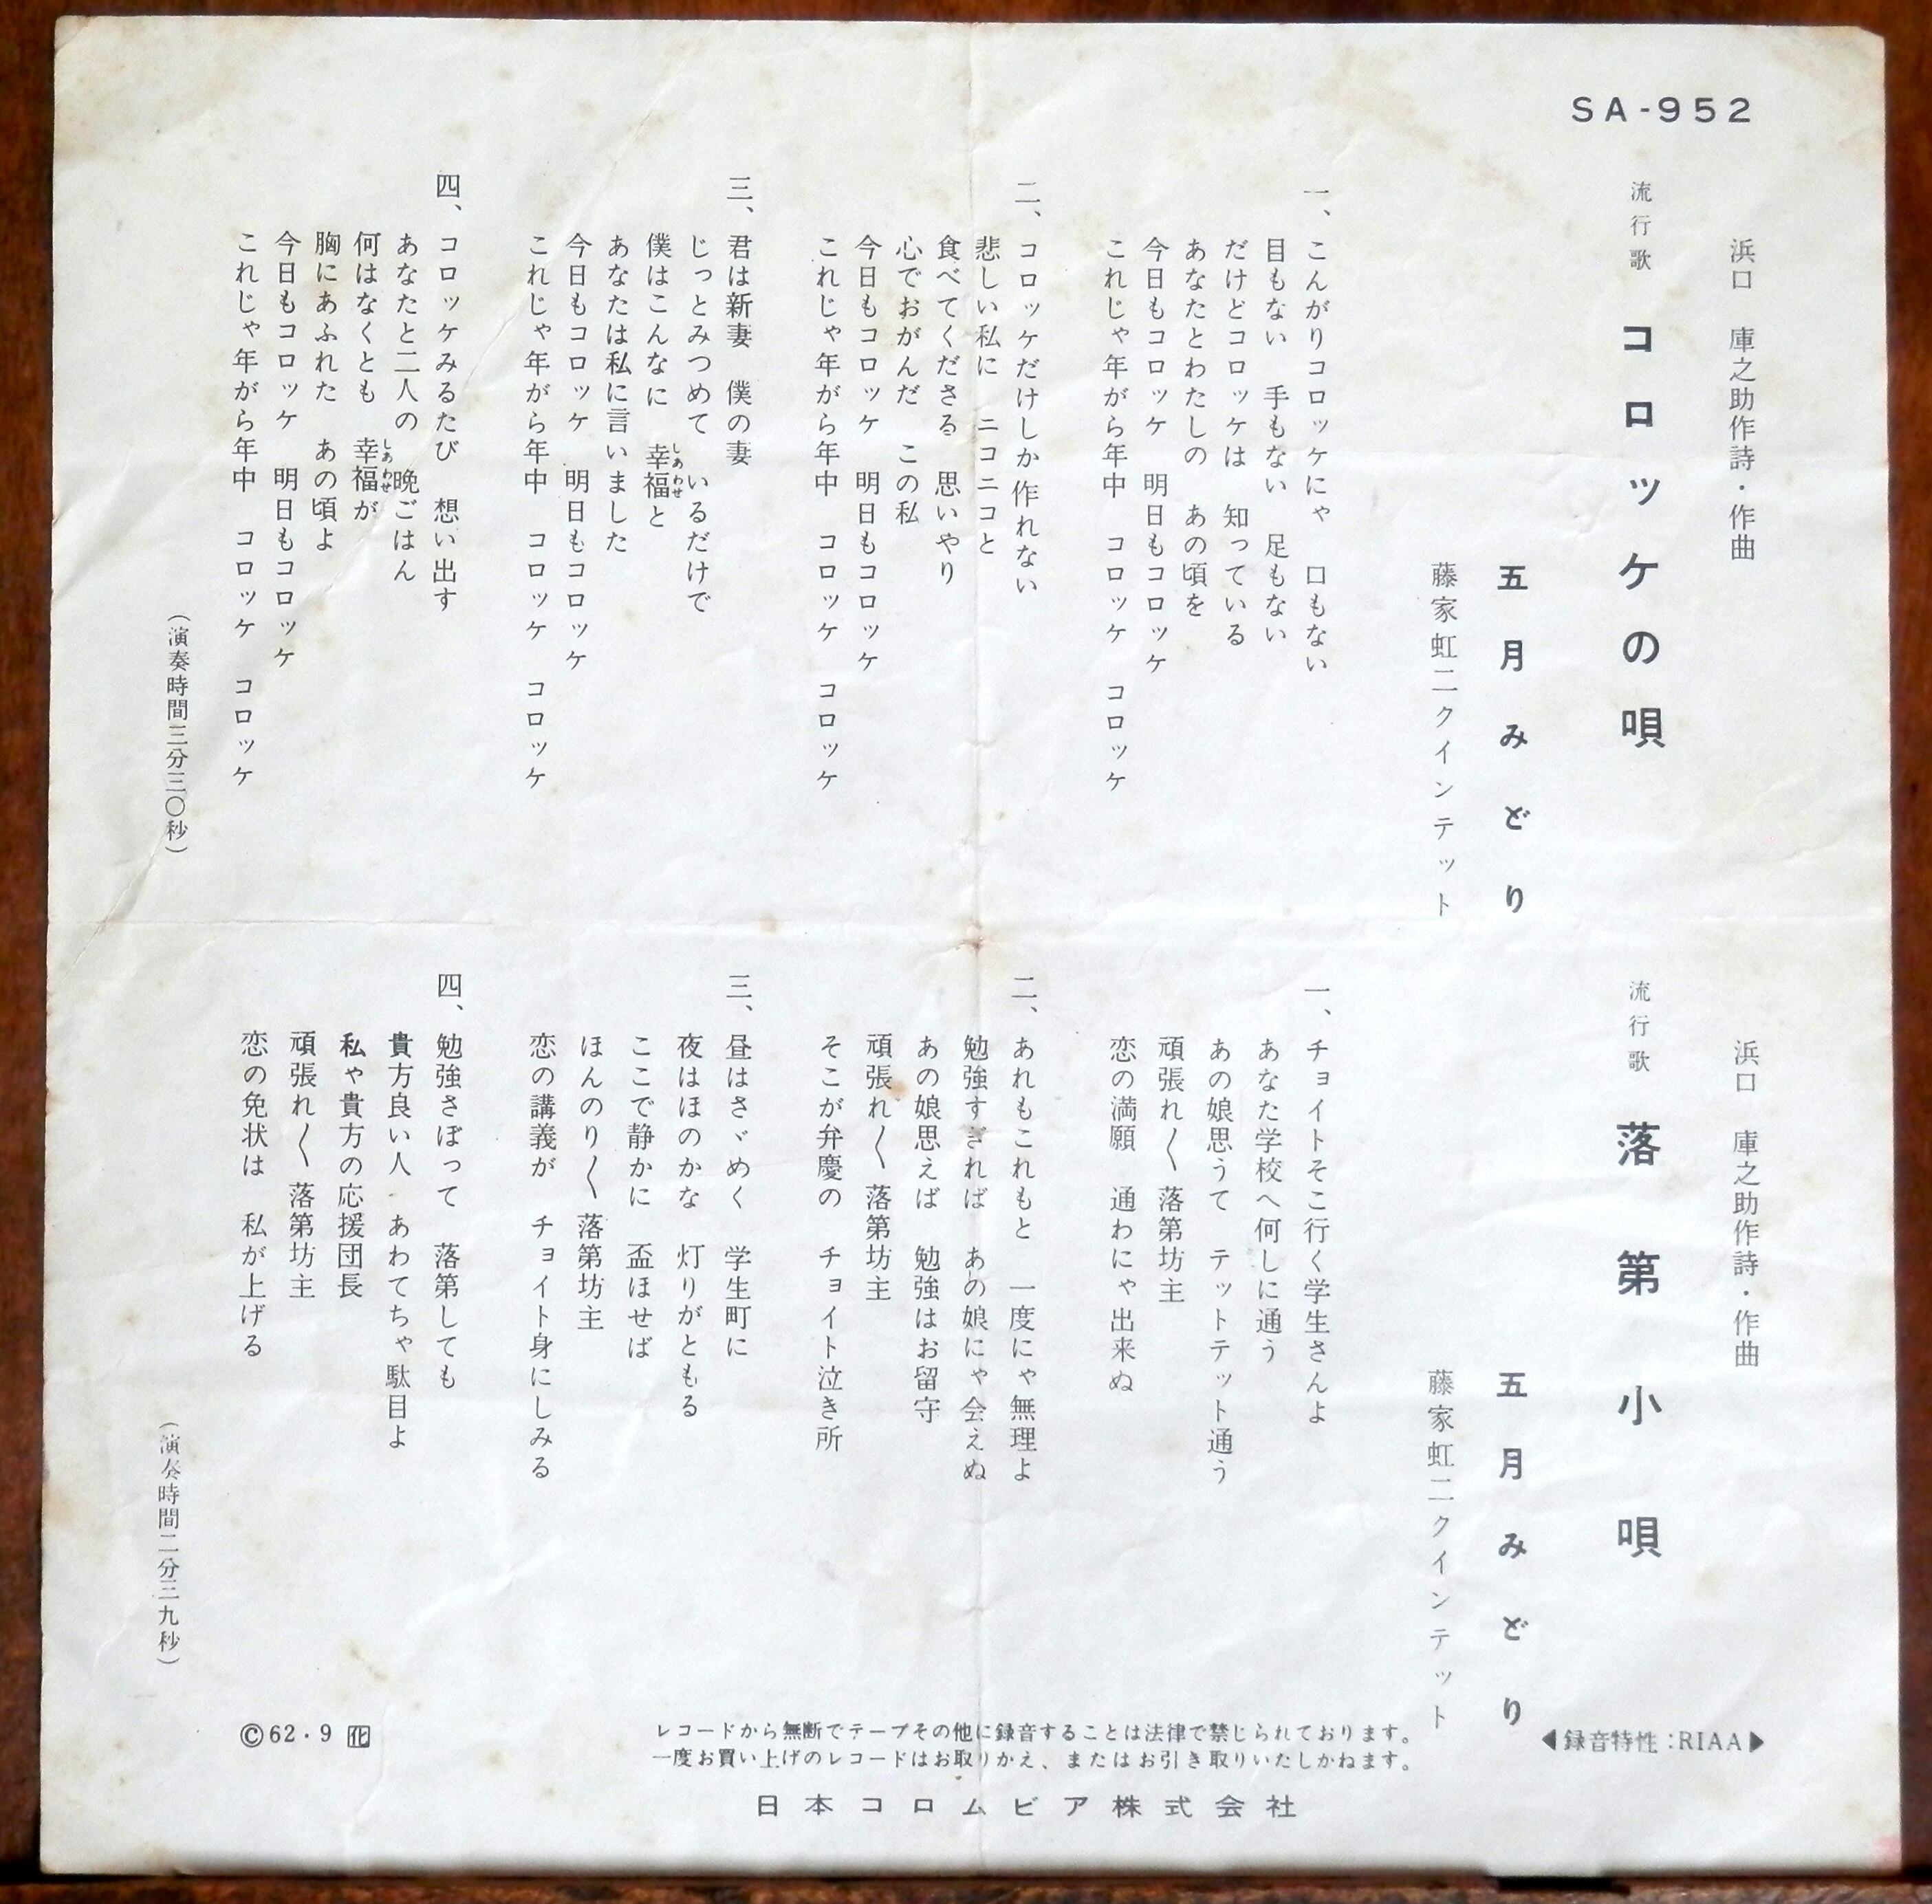 SA-952
浜口 庫之助作詩・作曲
流行歌 コロッケの唄
五月みどり
藤家虹二クインテット
一、こんがりコロッケにゃ 口もない
目もない 手もない 足もない
だけどコロッケは 知っている
あなたとわたしの あの頃を
今日もコロッケ 明日もコロッケ
これじゃ年がら年中 コロッケ コロッケ
二、コロッケだけしか作れない
悲しい私に ニコニコと
食べてくださる 思いやり
心でおがんだ この私
今日もコロッケ 明日もコロッケ
これじゃ年がら年中 コロッケ コロッケ
三、君は新妻 僕の妻
じっとみつめて いるだけで
僕はこんなに 幸福しあわせと
あなたは私に言いました
今日もコロッケ 明日もコロッケ
これじゃ年がら年中 コロッケ コロッケ
四、コロッケみるたび 想い出す
あなたと二人の 晩ごはん
何はなくとも 幸福しあわせが
胸にあふれた あの頃よ
今日もコロッケ 明日もコロッケ
これじゃ年がら年中 コロッケ コロッケ
（演奏時間三分三〇秒）
浜口 庫之助作詩・作曲
流行歌 落第小唄
五月みどり
藤家虹二クインテット
一、チョイトそこ行く学生さんよ
あなた学校へ何しに通う
あの娘思うて テットテット通う
頑張れ〱 落第坊主
恋の満願 通わにゃ出来ぬ
二、あれもこれもと 一度にゃ無理よ
勉強すぎれば あの娘にゃ会えぬ
あの娘思えば 勉強はお留守
頑張れ〱 落第坊主
そこが弁慶の チョイト泣き所
三、昼はさゞめく 学生町に
夜はほのかな 灯りがともる
ここで静かに 盃ほせば
ほんのり〱 落第坊主
恋の講義が チョイト身にしみる
四、勉強さぼって 落第しても
貴方良い人 あわてちゃ駄目よ
私ゃ貴方の応援団長
頑張れ〱 落第坊主
恋の免状は 私が上げる
（演奏時間二分三九秒）
◀録音特性:RIAA▶
レコードから無断でテープその他に録音することは法律で禁じられております。
一度お買い上げのレコードはお取りかえ、またはお引き取りいたしかねます。
日本コロムビア株式会社
©62・9 化